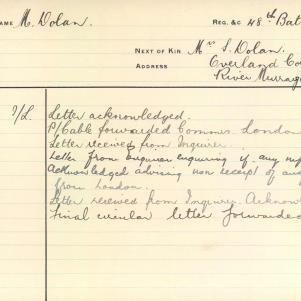 NAME M. Dolan. REG. &C 48th Bat
NEXT OF KIN Mrs S. Dolan.
ADDRESS Overland Co
River Murray
I/L. Letter acknowledged.
P/Cable forwarded Commrs. London
Letter received from Inquirer.
Letter from inquirer enquiring if any
Acknowledged advising non receipt of any
from London.
Letter received from Inquirer. Acknowl
Final circular letter forwarded